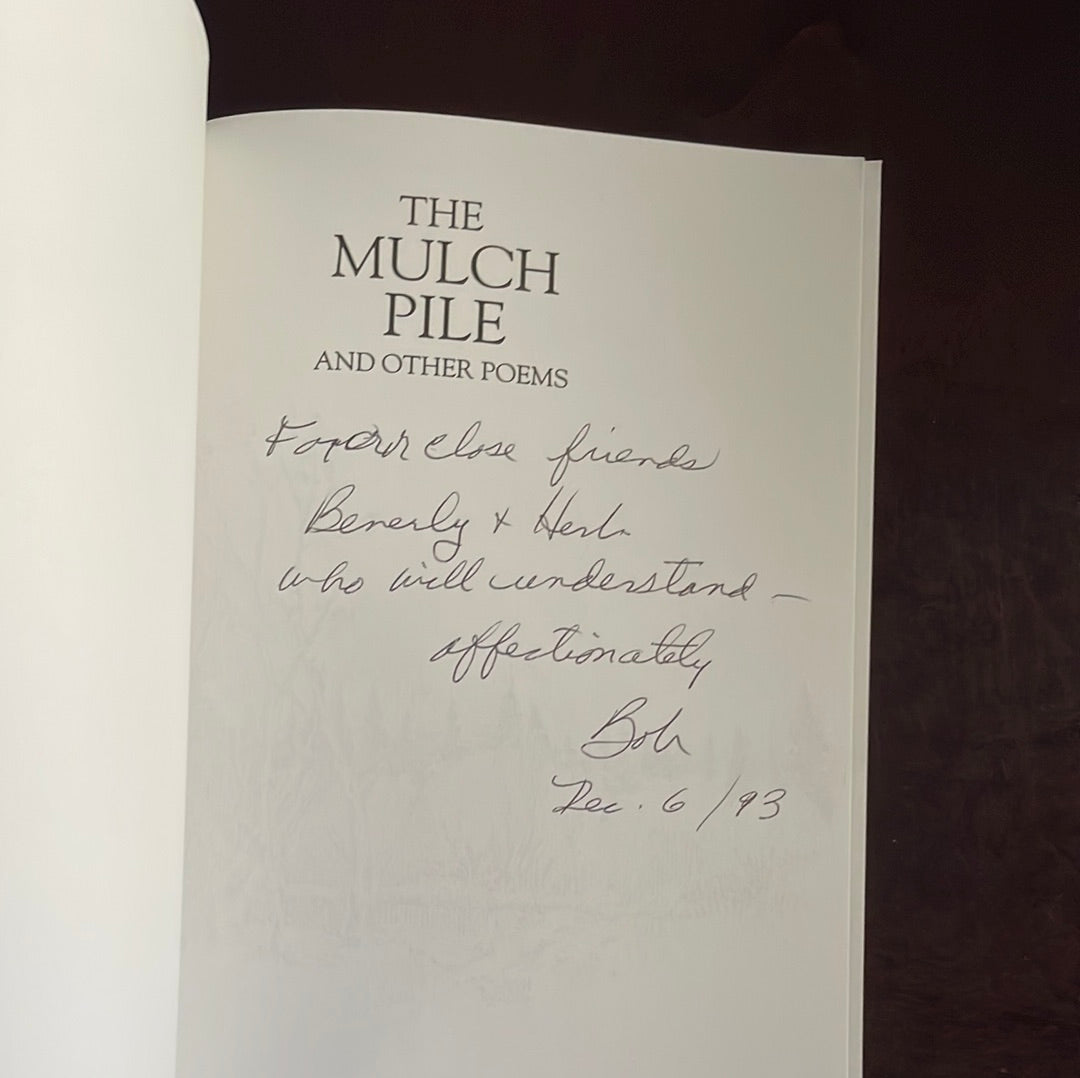 THE
MULCH
PILE
AND OTHER POEMS
For our close friends
Beverly + Herb
who will understand —
affectionately
Bob
Dec. 6 / 93